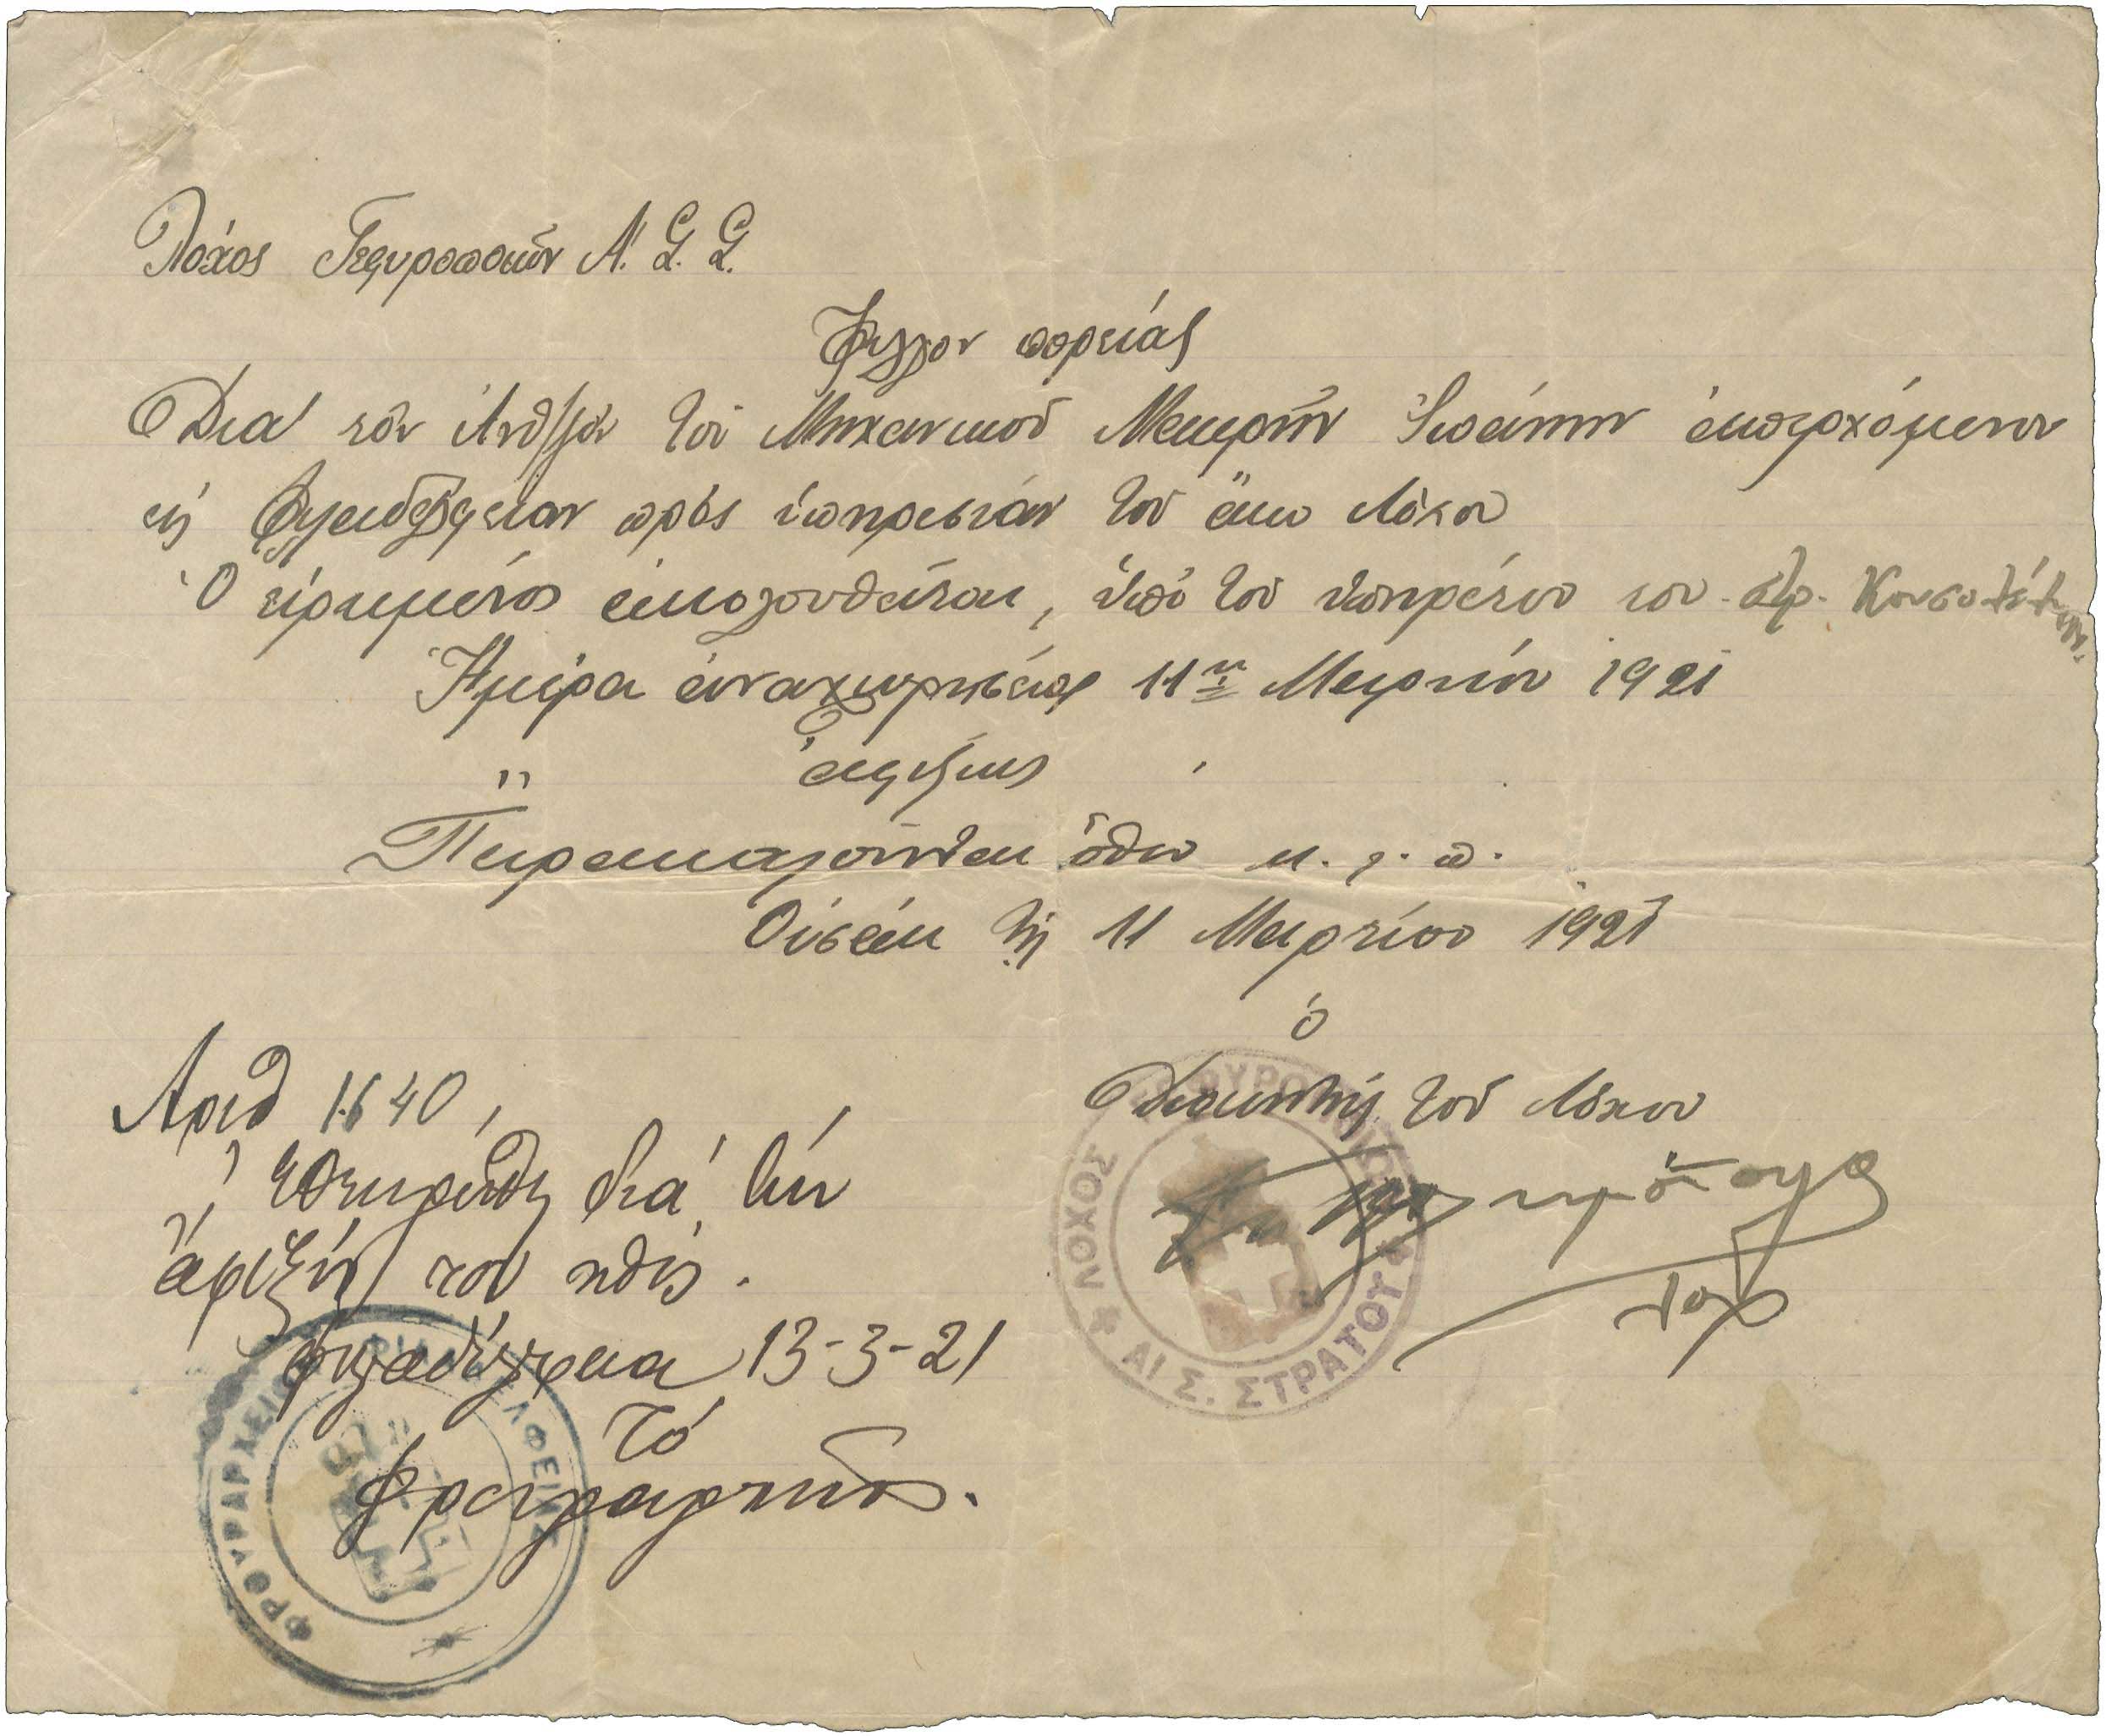 Λόχος Γεφυροποιῶν Α. Σ. Σ.
Φύλλον πορείας
Διὰ τὸν Ἀνθ/γὸν τοῦ Μηχανικοῦ Μακρῆν Ἰωάννην ἀπερχόμενον
εἰς Φιλαδέλφειαν πρὸς ὑπηρεσίαν τοῦ ἄνω Λόχου
Ὁ εἰρημένος ἀκολουθεῖται, ὑπὸ τοῦ ὑπηρέτου του στρ.
Ἡμέρα ἀναχωρήσεως 11η Μαρτίου 1921
" ἀφίξεως
Παρακαλοῦνται ὅθεν κ. λ. π.
Οὐσὰκ τῇ 11 Μαρτίου 1921
ὁ
Διοικητὴς τοῦ Λόχου
Λοχ
ΛΟΧΟΣ ΓΕΦΥΡΟΠΟΙΩΝ ΑΙ Σ. ΣΤΡΑΤΟΥ
Αριθ 1640
Ἐθεωρήθη διά τήν
ἄφιξίν του χθές.
Φιλαδέλφεια 13-3-21
Τό
Φρουραρχεῖον.
ΦΡΟΥΡΑΡΧΕΙΟΝ ΦΙΛΑΔΕΛΦΕΙΑΣ